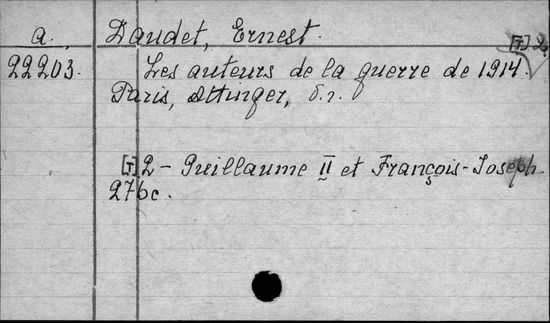 a. Daudet, Ernest.
[T] 2
22203. Les auteurs de la guerre de 1914.
Paris, Attinger, б.г.
[T] 2 - Guillaume II et François-Joseph.
276 с.